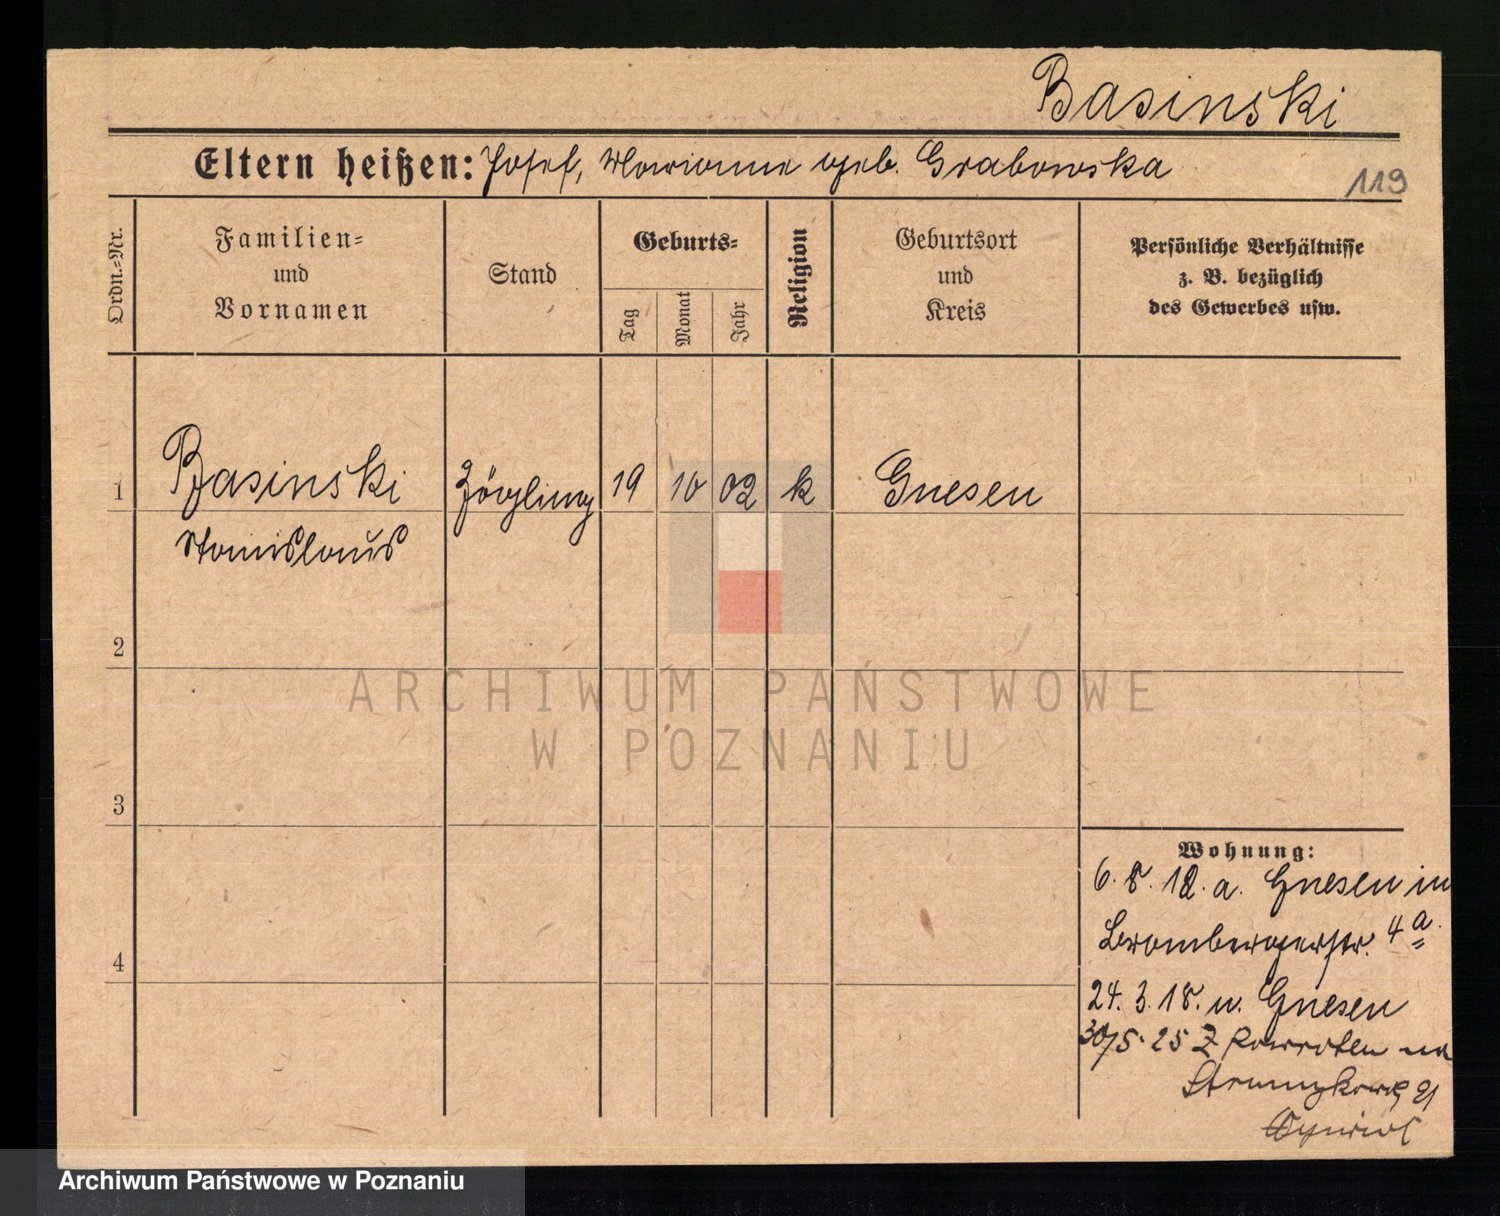 Basinski
Eltern heißen: Josef, Marianne geb. Grabowska
119
Ordn.-Nr.
Familien-
und
Vornamen
Stand
Geburts-
Tag
Monat
Jahr
Religion
Geburtsort
und
Kreis
Persönliche Verhältnisse
z. B. bezüglich
des Gewerbes usw.
1 Basinski Zögling 19 10 02 k Gnesen
Stanislaus
2
3
4
ARCHIWUM PAŃSTWOWE
W POZNANIU
Wohnung:
6. 8. 12. a. Gnesen in
Brombergerstr. 4a
24. 3. 18. n. Gnesen
30/5. 25 Z
Archiwum Państwowe w Poznaniu